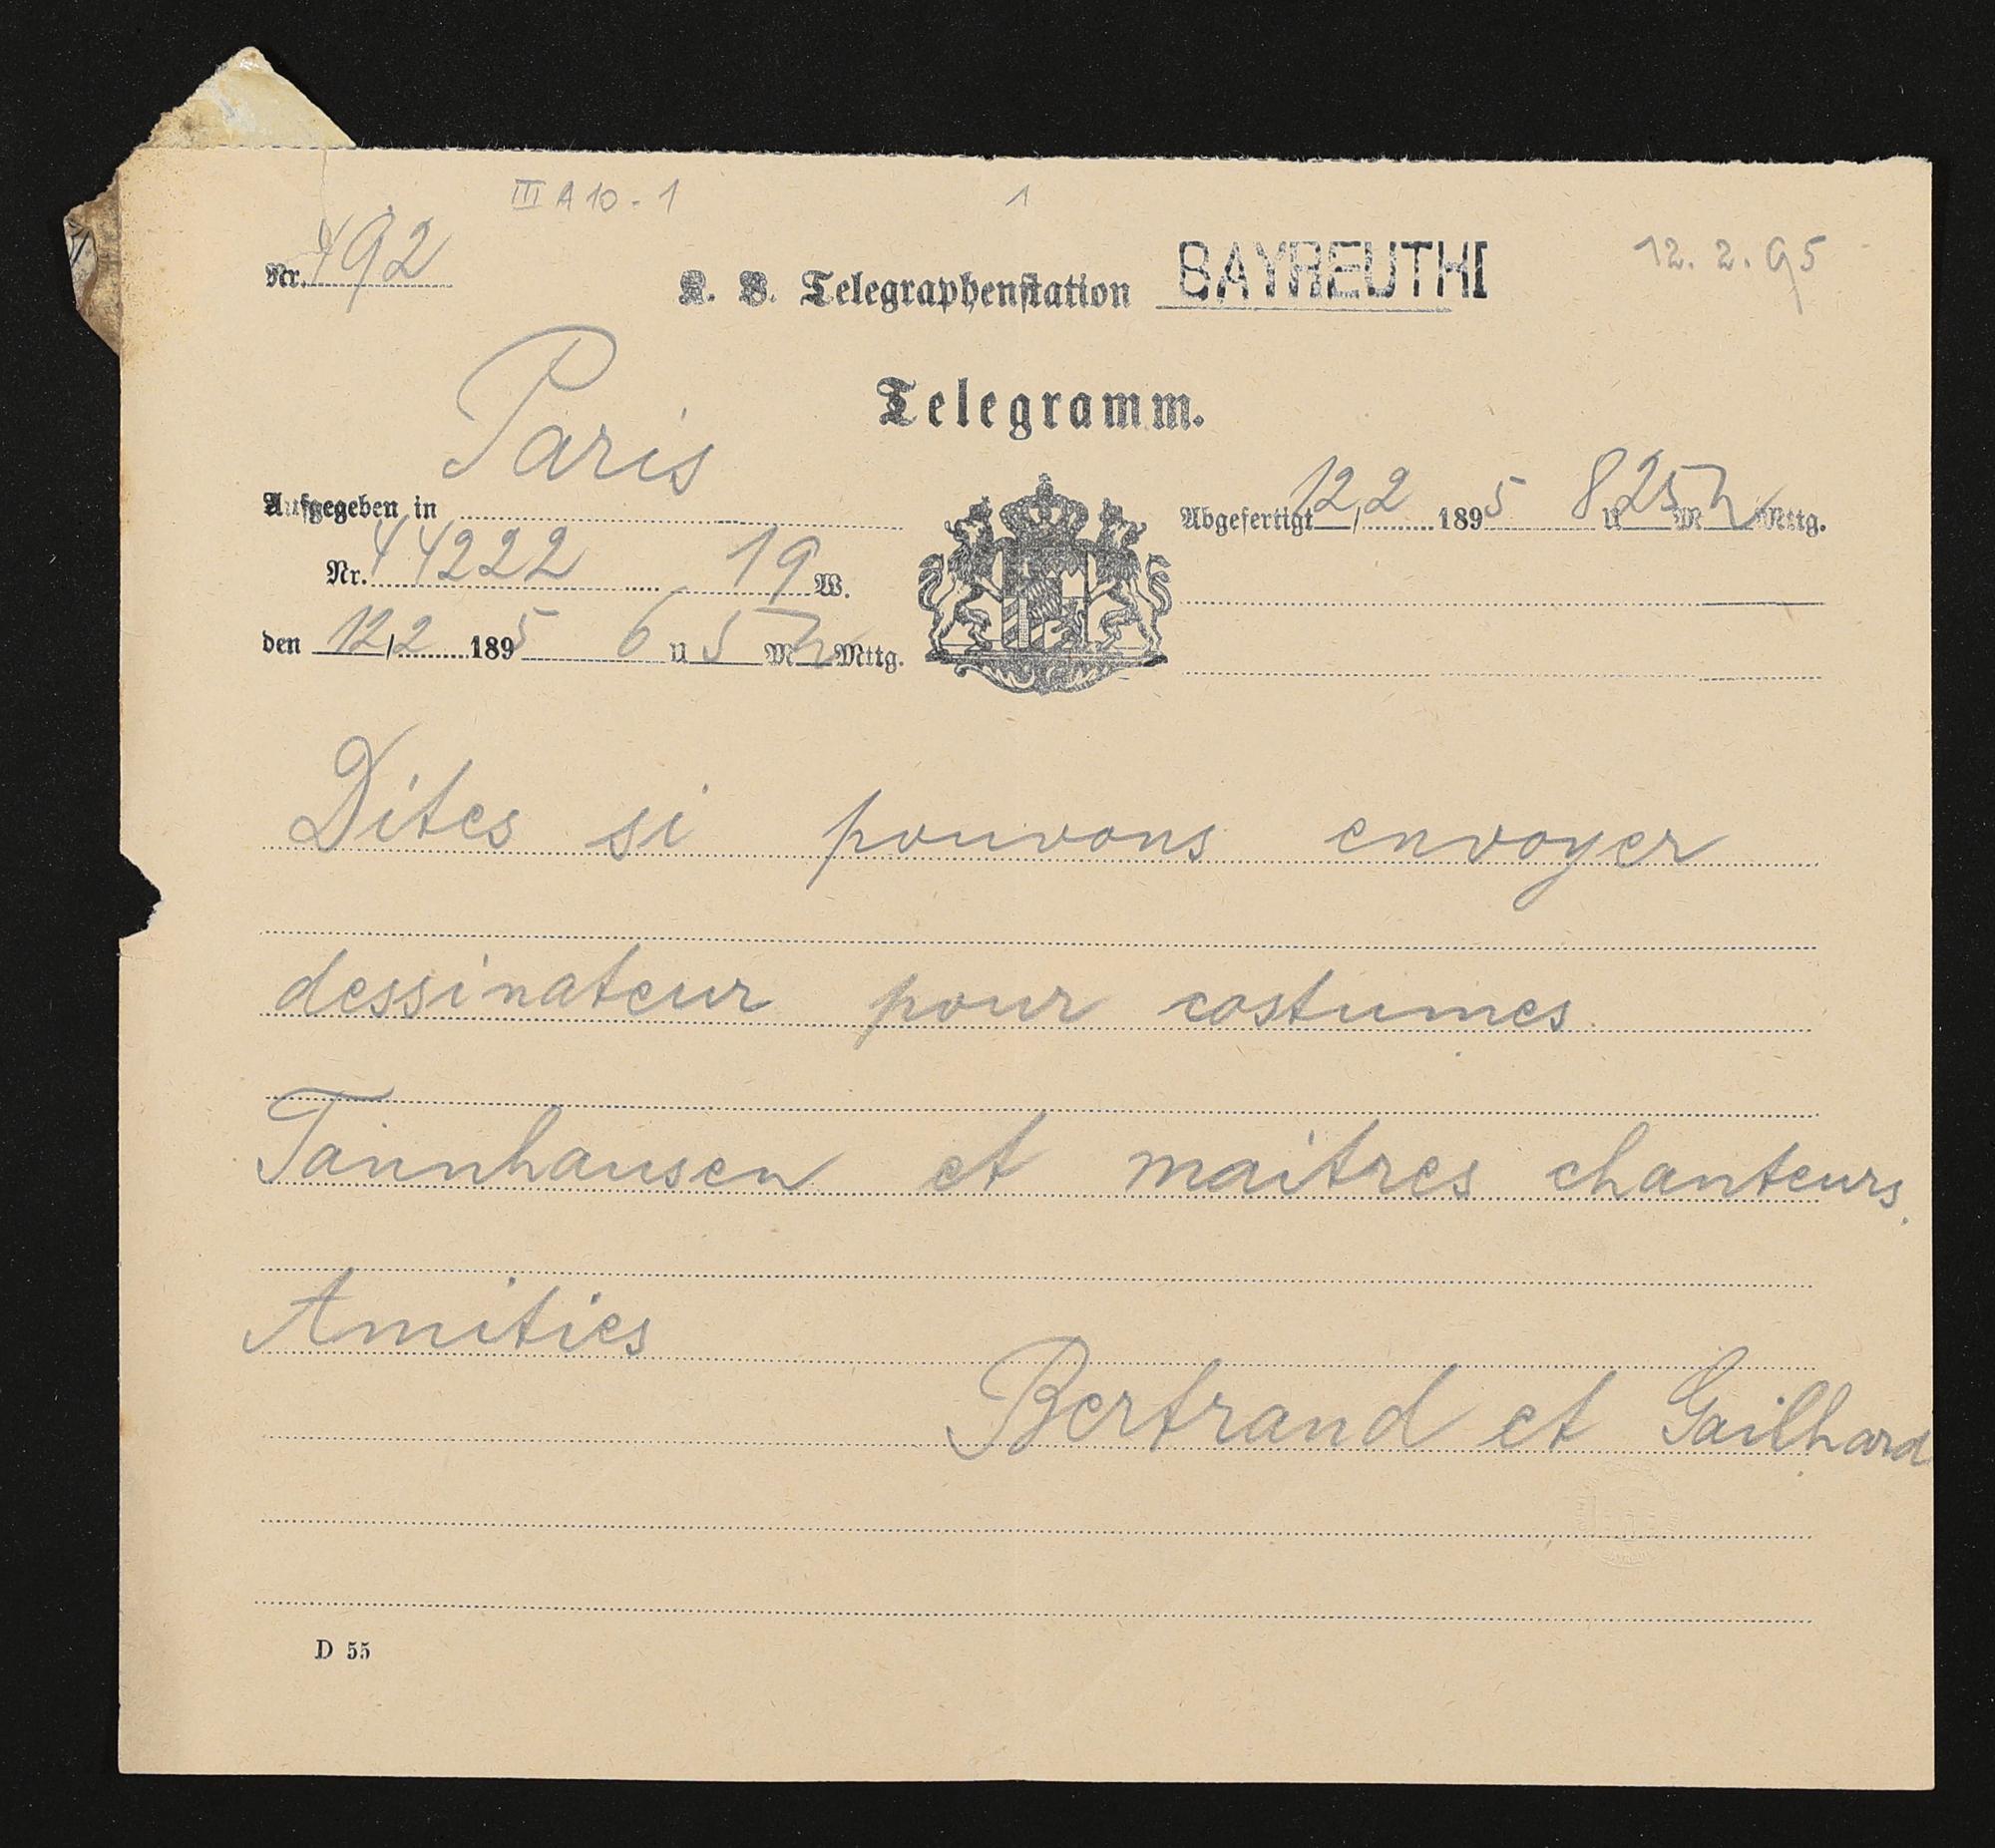 III A 10 - 1
1
Nr. 492
K. B. Telegraphenstation BAYREUTH I
12. 2. 95
Telegramm.
Paris
Aufgegeben in
Abgefertigt 12/2 1895 8 U 25 M N Mttg.
Nr. 44222 19 W.
den 12/2 1895 6 U 5 M N Mttg.
Dites si pouvons envoyer
dessinateur pour costumes
Tannhausen et maitres chanteurs.
Amities
Bertrand et Gailhard
D 55